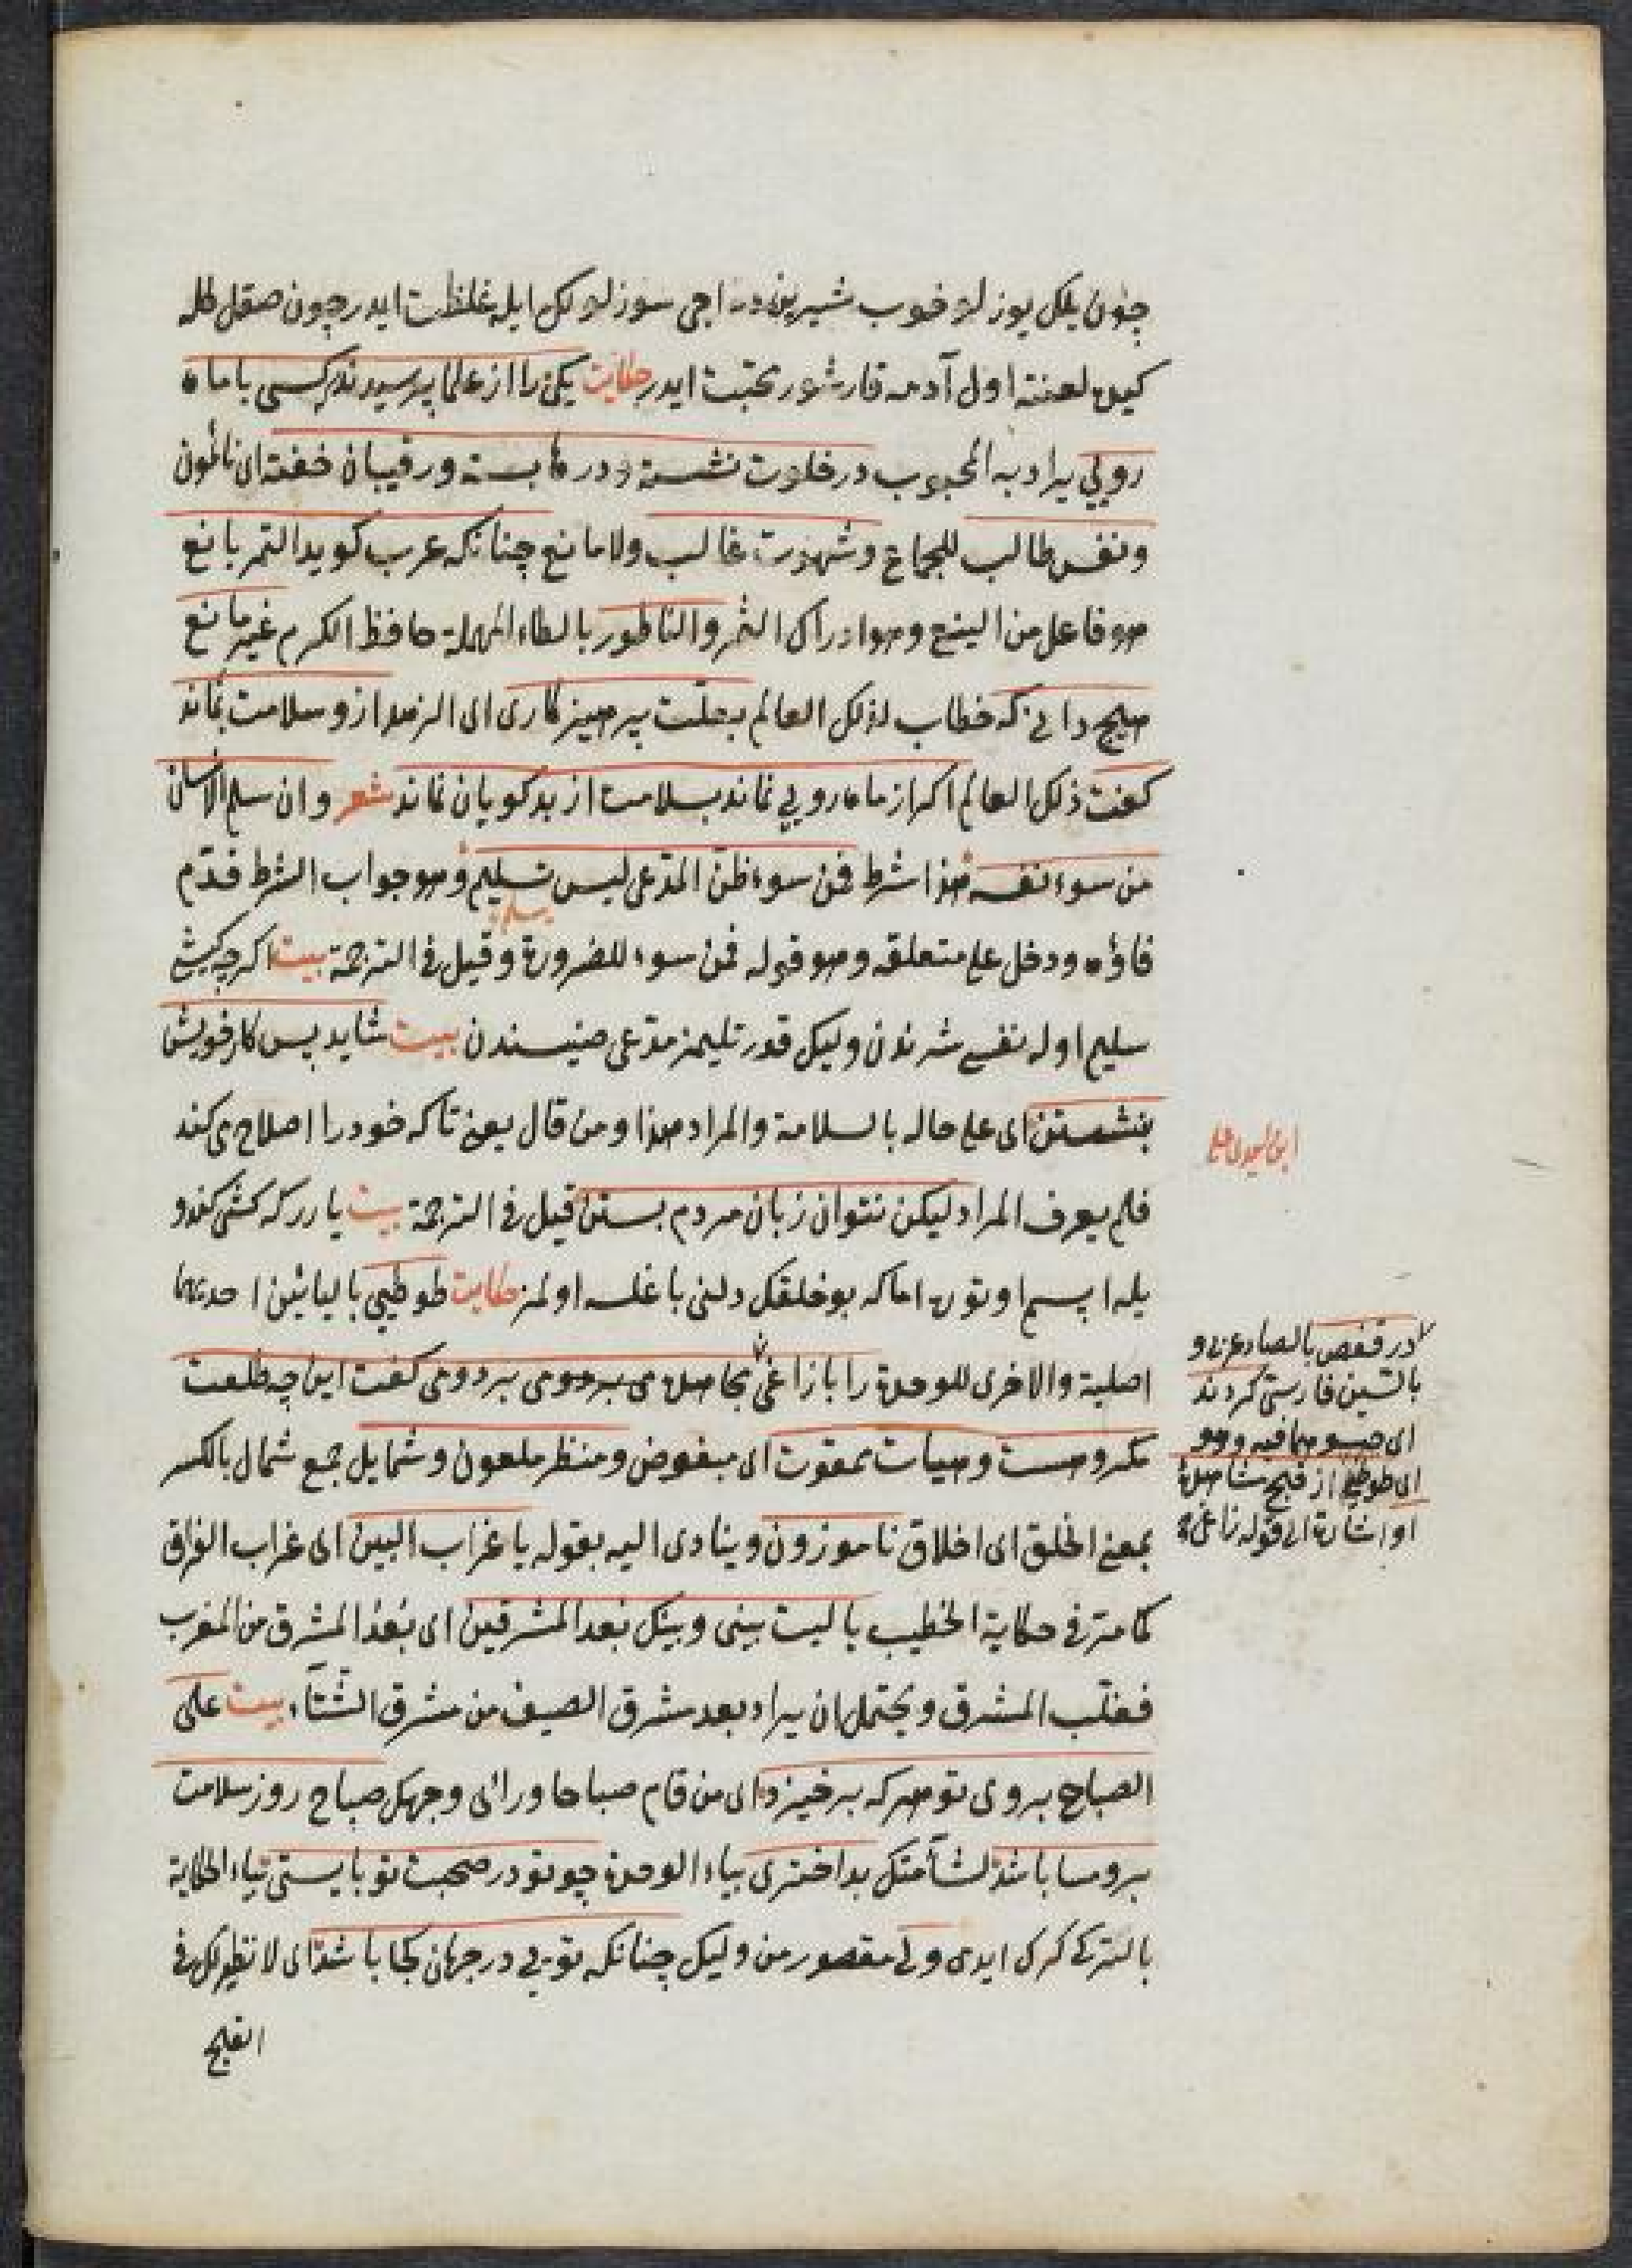 چون بلكل يوز لو خوب شيرين در اجى سوزلو لكل ايله غلظت ايدر چون صقل كله
كيده لعنته اول آدمه قارشو ر محبت ايدر حكايت يكى را از علما پرسيدند كه كسى با ماه
رويى يراد به المحبوب در خلوت نشسته و درها بسته ورقيبان خفته اى نائمون
ونفس طالب للجماع وشهوت غالب ولا مانع چنانكه عرب كويد التمر يانع
هو فاعل من الينع وهو ادراك الثمر والناطور بالطاء المهملة حافظ الكرم غير مانع
هيچ دانى كه خطاب لذلك العالم بعلت پرهيزكارى اى الزهد از و سلامت بماند
كفت ذلك العالم اكر از ماه رويى بماند بسلامت از بدكويان نماند شعر وان سلم الانسان
من سوء نفسه هذا شرط فمن سوء ظن المدعى ليس يسلم وهو جواب الشرط قدم
فاؤه ودخل على متعلقه وهو قوله فمن سوء للضرورة وقيل فى الترجمة بيت اكرچه كيشى
سليم اوله نفسى شرندن وليك قورتليمز مدعى ضنيسندن بيت شايد پس كار خويش
بنشستن اى على حاله بالسلامة والمراد هذا ومن قال يعنى تا كه خود را اصلاح مى كند
فلم يعرف المراد ليكن نتوان زبان مردم بستن قيل فى الترجمة بيت يارر كه كشى كندو
يله ايسم اوتوره اما كه بو خلقك دلنى باغلسه اولمز حكايت طوطيى باليائين احديهما
اصلية والاخرى للوحدة را با زاغى مجاهده مى برد ومى كفت اين چه طلعت
مكروهست وهيأت ممقوت اى مبغوض ومنظر ملعون وشمايل جمع شمال بالكسر
بمعنى الخلق اى اخلاق ناموزون وينادى اليه بقوله يا غراب البين اى غراب الفراق
كما مر فى حكاية الخطيب يا ليت بينى وبينك بعد المشرقين اى بعد المشرق من المغرب
فغلب المشرق ويحتمل ان يراد بعد مشرق الصيف من مشرق الشتاء بيت على
الصباح بروى تو هر كه برخيزد اى من قام صباحا وراى وجهك صباح روز سلامت
برو مسا باشد لشأمتك بداخترى بياء الوحدة چو تو در صحبت تو بايستى بياء الحكاية
بالتركى كرك ايدى ولى مقصور من وليك چنانكه تويى در جهان كجا باشد اى لا نظير لك فى
القبح
در قفص بالصاد عربى و
بالسين فارسى كردند
اى طوطى از قبح مشاهدة
او اشارة الى قوله زاغى